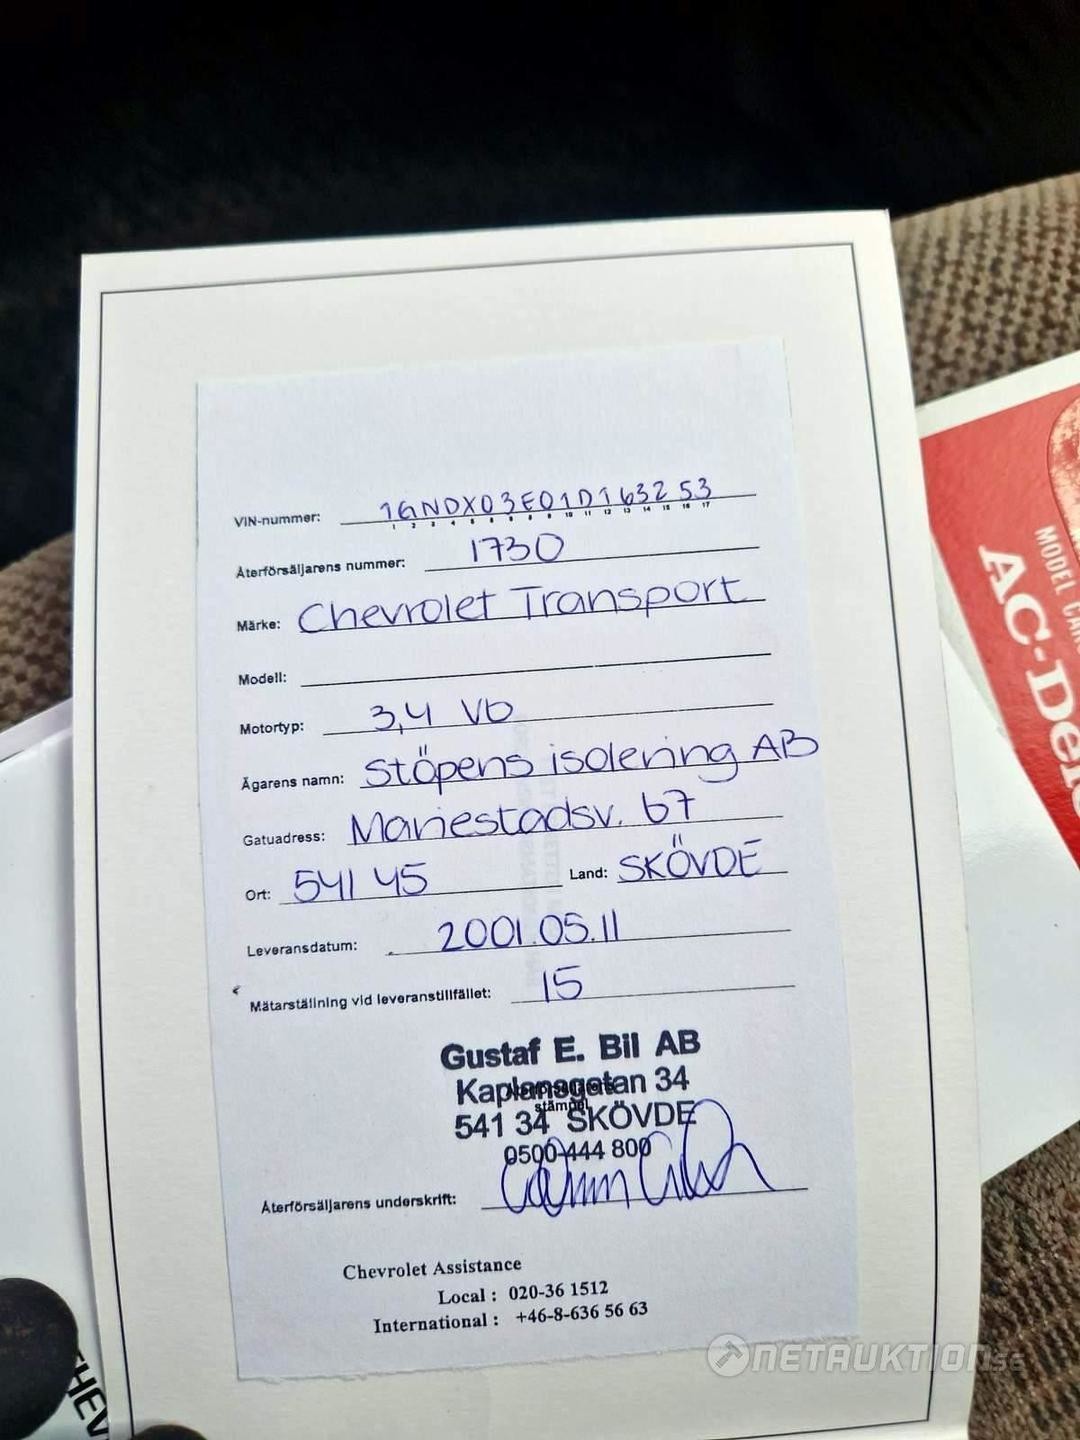 VIN-nummer: 1GNDX03E01D163253
1 2 3 4 5 6 7 8 9 10 11 12 13 14 15 16 17
Återförsäljarens nummer: 1730
Märke: Chevrolet Transport
Modell:
Motortyp: 3,4 V6
Ägarens namn: Stöpens isolering AB
Gatuadress: Mariestadsv. 67
Ort: 541 45 Land: SKÖVDE
Leveransdatum: 2001.05.11
Mätarställning vid leveranstillfället: 15
Gustaf E. Bil AB
Kaplansgatan 34
stämpel
541 34 SKÖVDE
0500-444 800
Återförsäljarens underskrift:
Chevrolet Assistance
Local : 020-36 1512
International : +46-8-636 56 63
MODEL
AC-Del
CHEV
NETAUKTION.SE